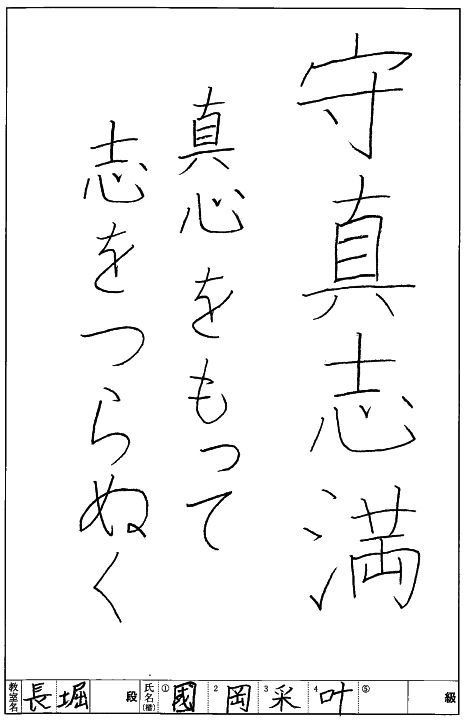 守真志満
真心をもって
志をつらぬく
教室名 長堀 段 氏名(楷) ① 國 2 岡 3 采 4 叶 ⑤ 級